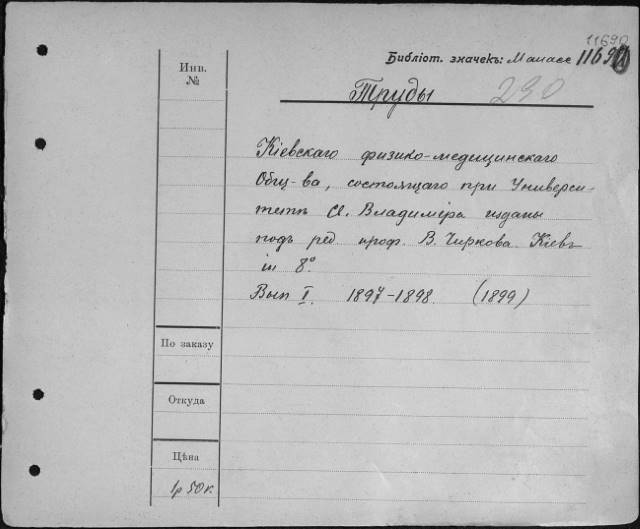 11690
Библіот. значекъ: Манасс 1169
Инв.
№
Труды 290
Кіевскаго физико-медицинскаго
Общ-ва, состоящаго при Универси-
тетѣ Св. Владиміра изданы
подъ ред проф. В. Чиркова. Кіевъ
in 8°.
Вып I. 1897-1898 (1899)
По заказу
Откуда
Цѣна
1р 50к